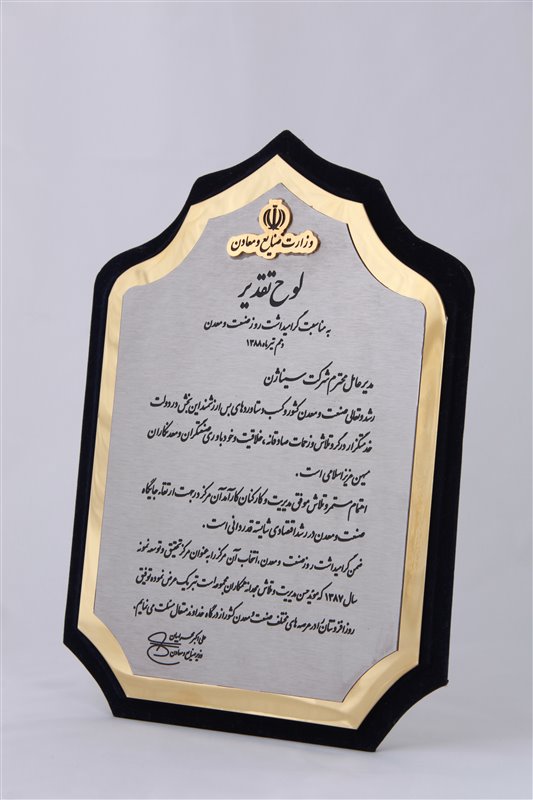 وزارت صنایع و معادن
لوح تقدیر
به مناسبت گرامیداشت روز صنعت و معدن
دهم تیرماه ۱۳۸۸
مدیرعامل محترم شرکت سیناژن
رشد و تعالی صنعت و معدن کشور و کسب دستاوردهای بس ارزشمند این بخش در دولت
خدمتگزار در گرو تلاش و زحمات صادقانه، خلاقیت و خودباوری صنعتگران و معدنکاران
میهن عزیز اسلامی است.
اهتمام مستمر و تلاش موفق مدیریت و کارکنان کارآمد آن مرکز در جهت ارتقاء جایگاه
صنعت و معدن در رشد اقتصادی شایسته قدردانی است.
ضمن گرامیداشت روز صنعت و معدن، انتخاب آن مرکز را به عنوان مرکز تحقیق و توسعه نمونه
سال ۱۳۸۷ که موید حسن مدیریت و تلاش همکاران مجموعه است تبریک عرض نموده توفیق
روزافزونتان را در عرصه های مختلف صنعت و معدن کشور از درگاه خداوند متعال مسئلت می نمایم.
علی اکبر محرابیان
وزیر صنایع و معادن